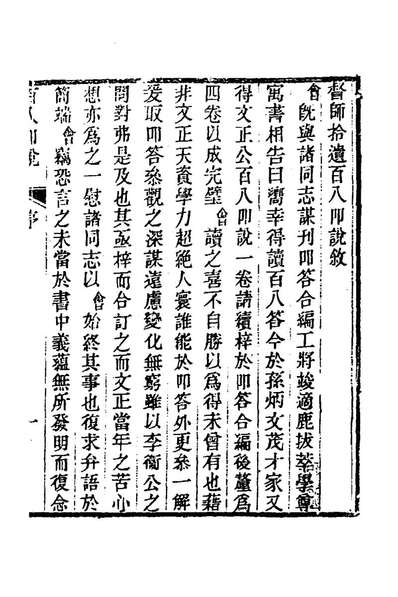 督師拾遺百八叩說敘
會旣與諸同志謀刊叩答合編工將竣適鹿拔萃學尊
寓書相告曰嚮幸得讀百八答今於孫炳文茂才家又
得文正公百八叩說一卷請續梓於叩答合編後釐爲
四卷以成完璧會讀之喜不自勝以爲得未曾有也藉
非文正天資學力超絶人寰誰能於叩答外更叅一解
爰取叩答叅觀之深謀遠慮變化無窮雖以李衞公之
問對弗是及也其亟梓而合訂之而文正當年之苦心
想亦爲之一慰諸同志以會始終其事也復求弁語於
簡端會竊恐言之未當於書中義蘊無所發明而復念
百八叩說
序
一